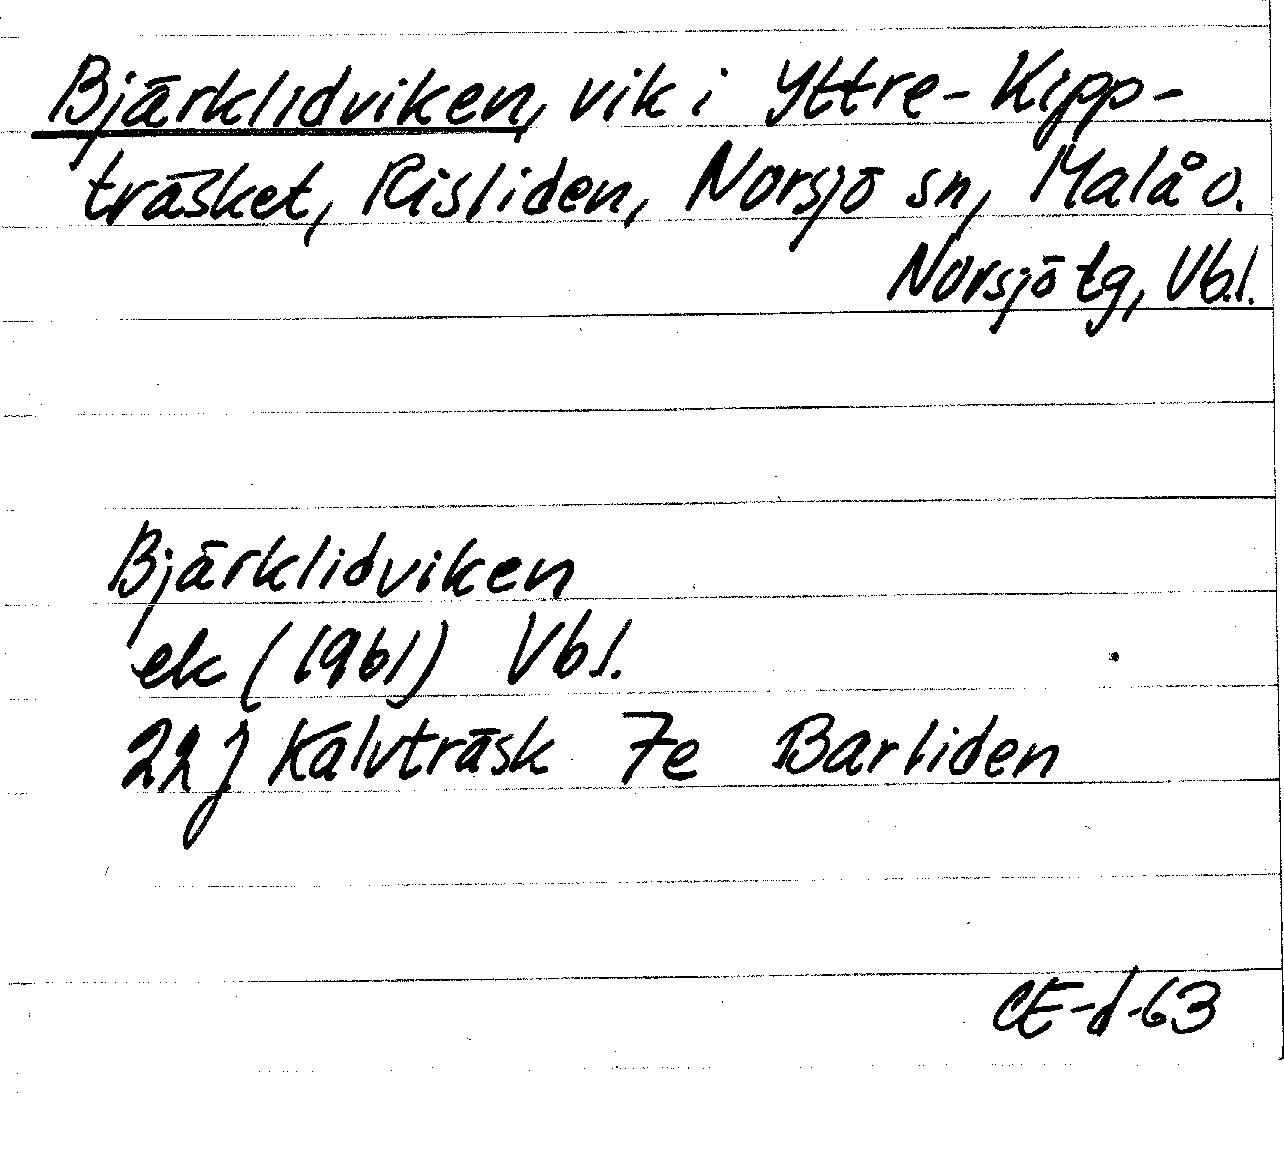 Bjärklidviken, vik i Yttre-Kipp-
träsket, Risliden, Norsjö sn, Malå o.
Norsjö tg, Vb.l.
Bjärklidviken
ek (1961) Vb l.
22 J Kalvträsk 7e Barliden
CE-d-63